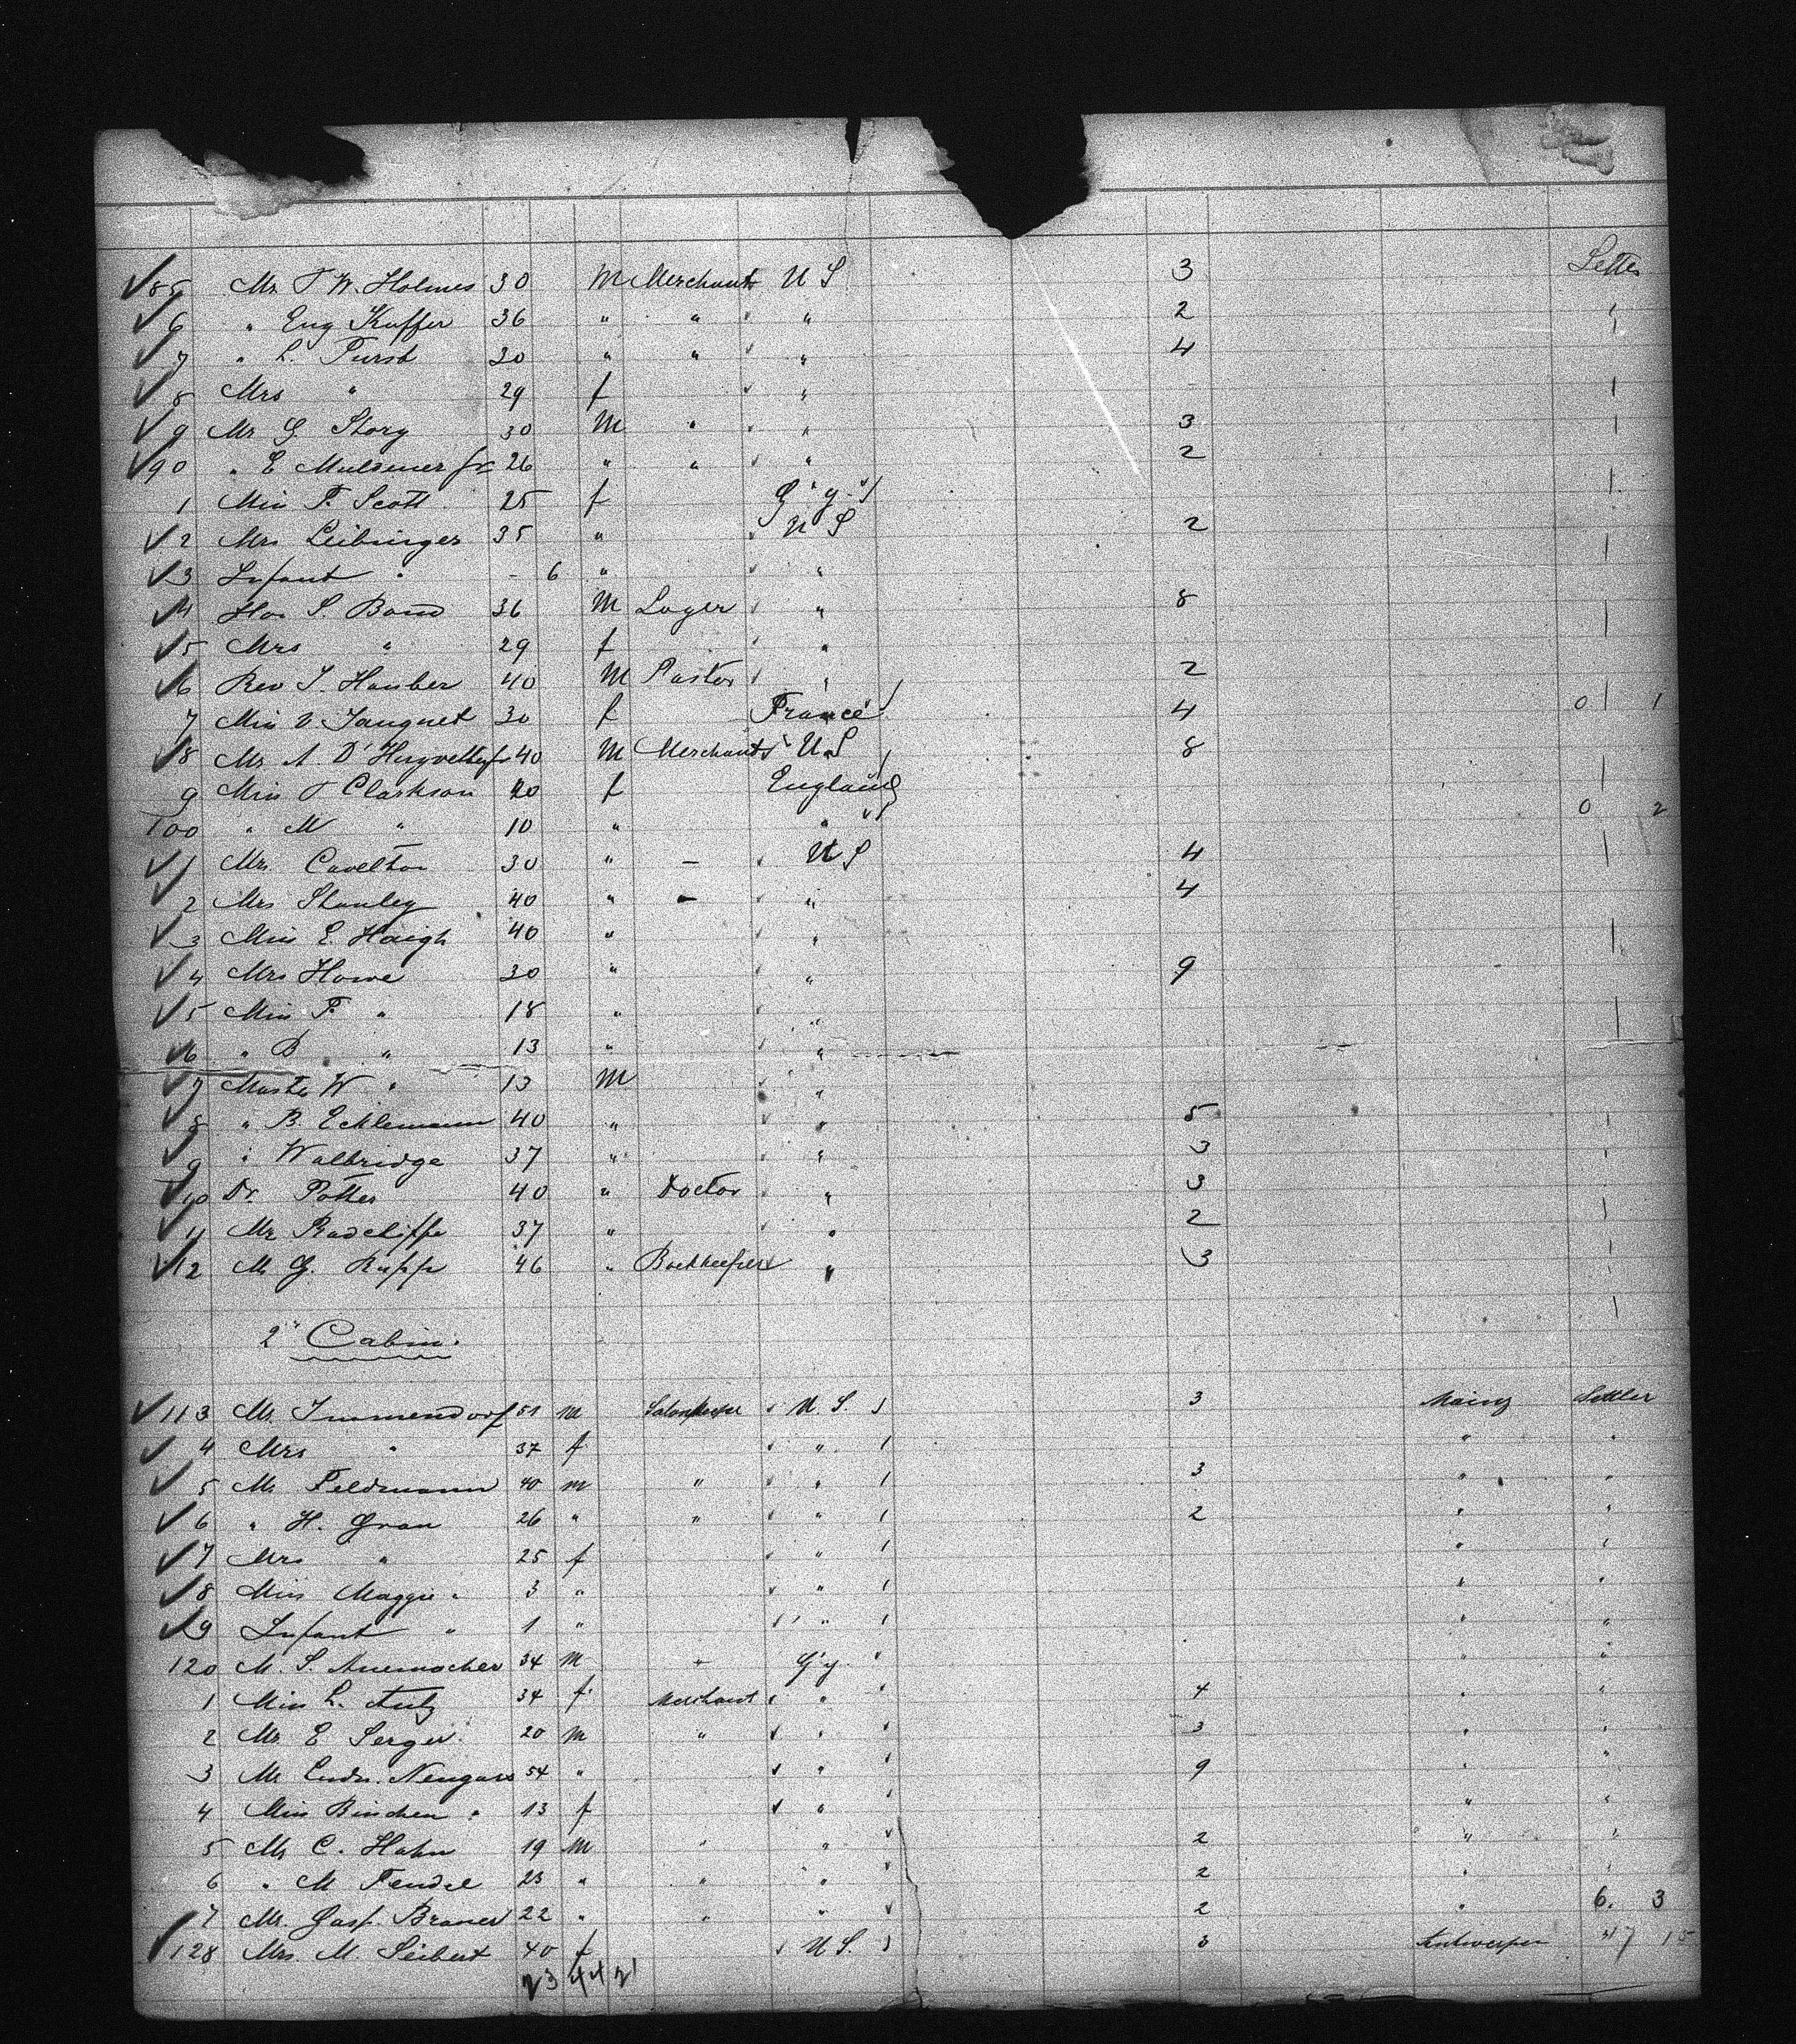 85 Mr T W. Holmes 30 M Merchant U S 3 Settler
6 " Eug Kuffer 36 " " " 2
7 " L. Furst 30 " " " 4
8 Mrs " 29 f "
9 Mr G. Story 30 M " " 3
90 " E 26 " " " 2
1 Miss F. Scott 25 f G'y
2 Mrs Leibinger 35 " U S 2
3 Infant " - 6 " "
4 Hon S. Bond 36 M Loyer " 8
5 Mrs " 29 f "
6 Rev J. Hauber 40 M Pastor " 2
7 Miss V. Jauquet 30 f France 4 0 1
8 Mr A. D' 40 M Merchant U.S 8
9 Miss T Clarkson 20 f England
100 " M " 10 " " 0 2
1 Mr. 30 " - U S 4
2 Mrs Stanley 40 " - " 4
3 Miss E. Haigh 40 " "
4 Mrs Howe 30 " " 9
5 Miss F. " 18 " "
6 " B " 13 " "
7 Master W " 13 M "
8 " B. Ecklemann 40 " " 5
9 " Walbridge 37 " " 3
10 Dr. Potter 40 " Doctor " 3
11 Mr Radcliffe 37 " " 2
12 M G. Rupp 46 " Bookkeeper " 3
2" Cabin.
113 Mr. Immendorf 51 m U. S. 3 Mainz Settler
4 Mrs " 37 f " " "
5 Mr Feldmann 40 m " " 3 " "
6 " H. Gran 26 " " " 2 " "
7 Mrs " 25 f " " "
8 Miss Maggie " 3 " " " "
9 Infant " 1 " " " "
120 M. S. 34 M " G'y. " "
1 Miss L. 34 f. Merchant " 4 " "
2 Mr E Serger 20 m " " 3 " "
3 Mr 54 " " 9 " "
4 Miss Binchen " 13 f " " "
5 Mr C. Hahn 19 M " " 2 " "
6 " M Fendel 23 " " " 2 " "
7 Mr. Gasp. Brauer 22 " " " 2 " 6. 3
128 Mrs. M. Seibert 40 f U S. 3 Antwerpen " 17 15
23 44 21